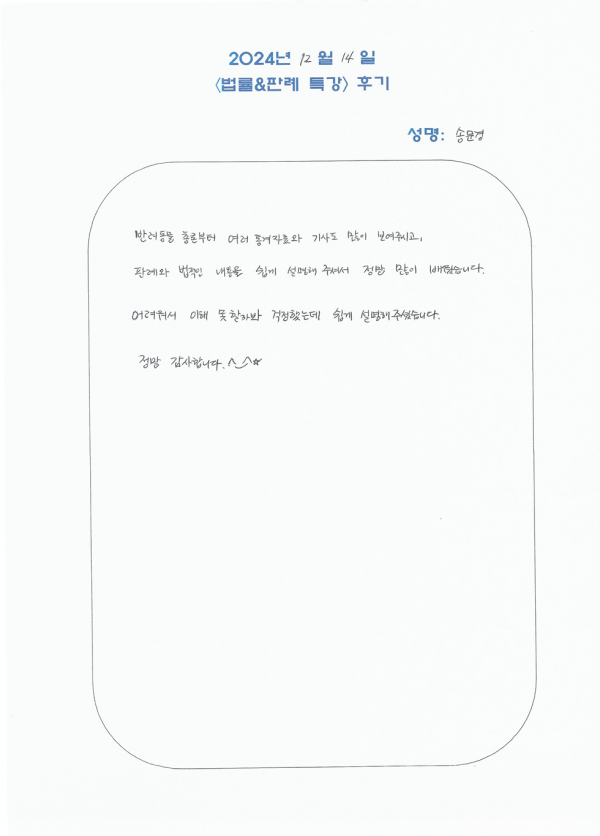 2024년 12 월 14 일
<법률&판례 특강> 후기
성명: 송문경
반려동물 총론부터 여러 통계자료와 기사도 많이 보여주시고,
판례와 법적인 내용을 쉽게 설명해 주셔서 정말 많이 배웠습니다.
어려워서 이해 못할까봐 걱정했는데 쉽게 설명해주셨습니다.
정말 감사합니다. ^_^☆